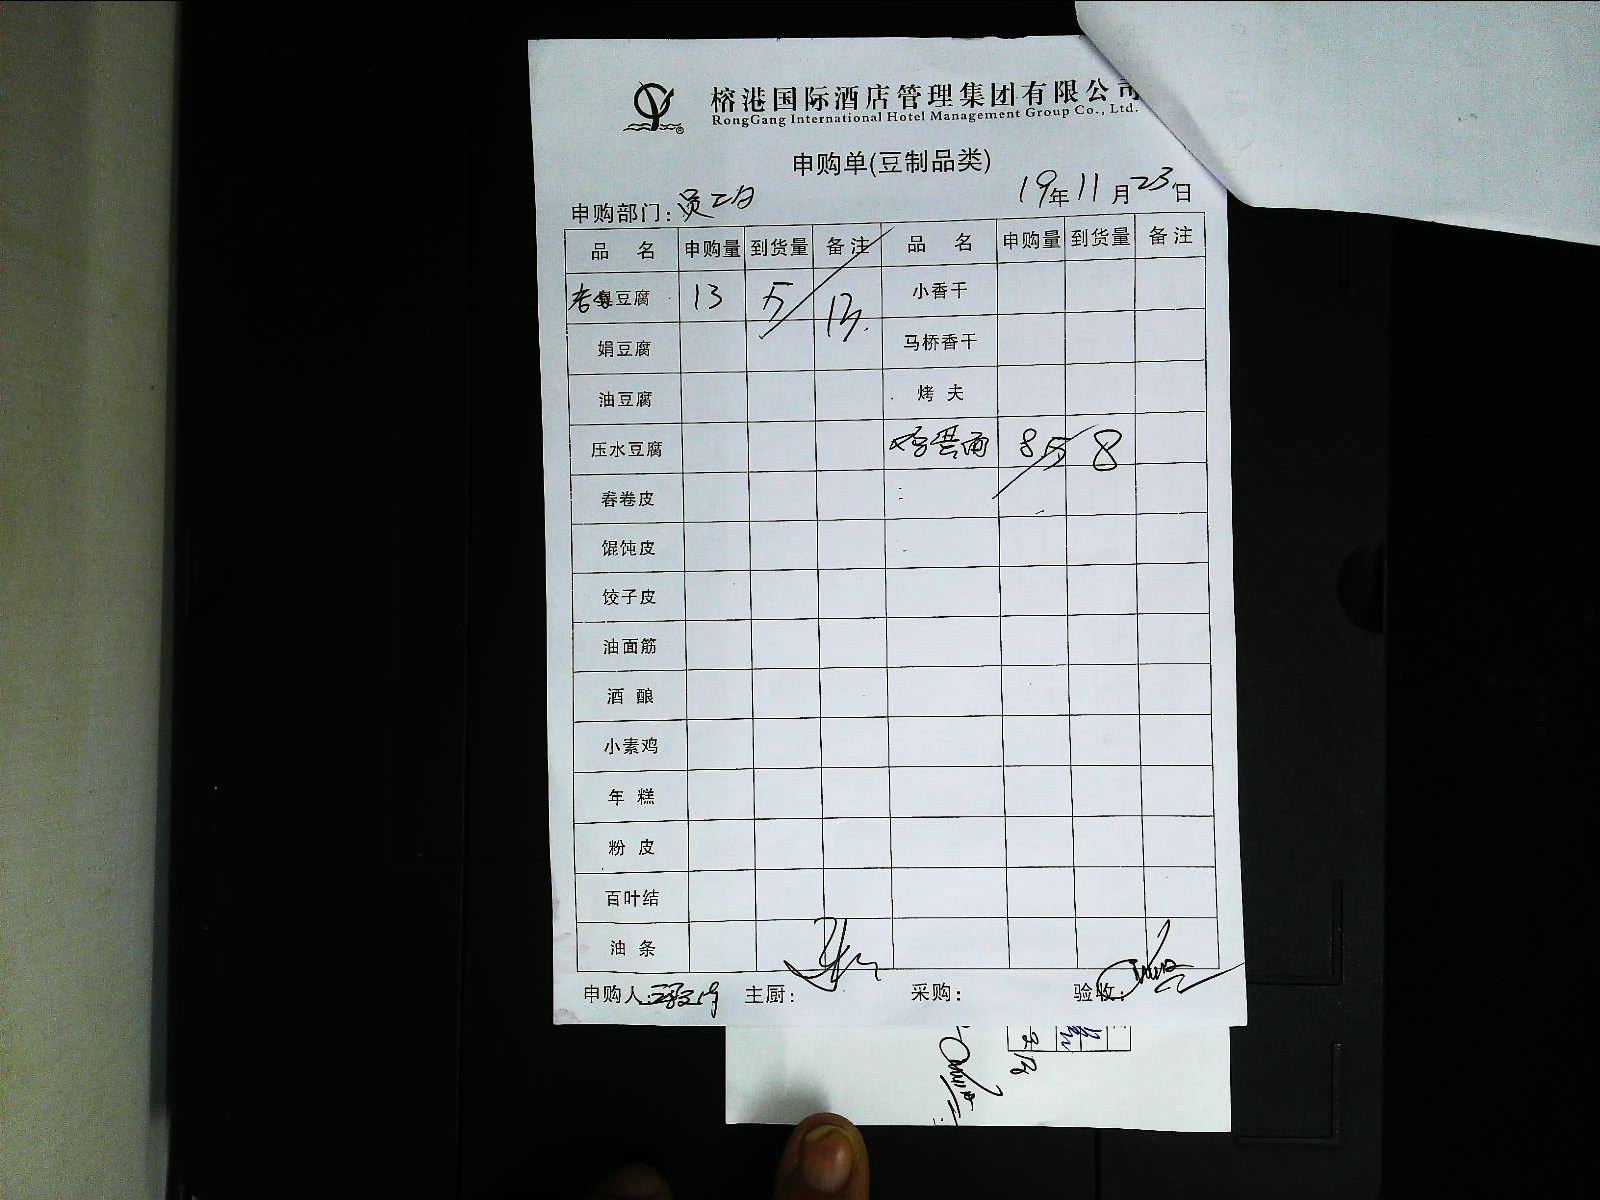 榕港国际酒店管理集团有限公司
RongGang International Hotel Management Group Co., Ltd.
申购单(豆制品类)
申购部门: 员工 19年11月23日
品 名 申购量 到货量 备注 品 名 申购量 到货量 备注
豆腐 13 斤 13 小香干
娟豆腐 马桥香干
油豆腐 烤 夫
压水豆腐 8斤 8
春卷皮
馄饨皮
饺子皮
油面筋
酒 酿
小素鸡
年 糕
粉 皮
百叶结
油 条
申购人: 主厨: 采购: 验收: